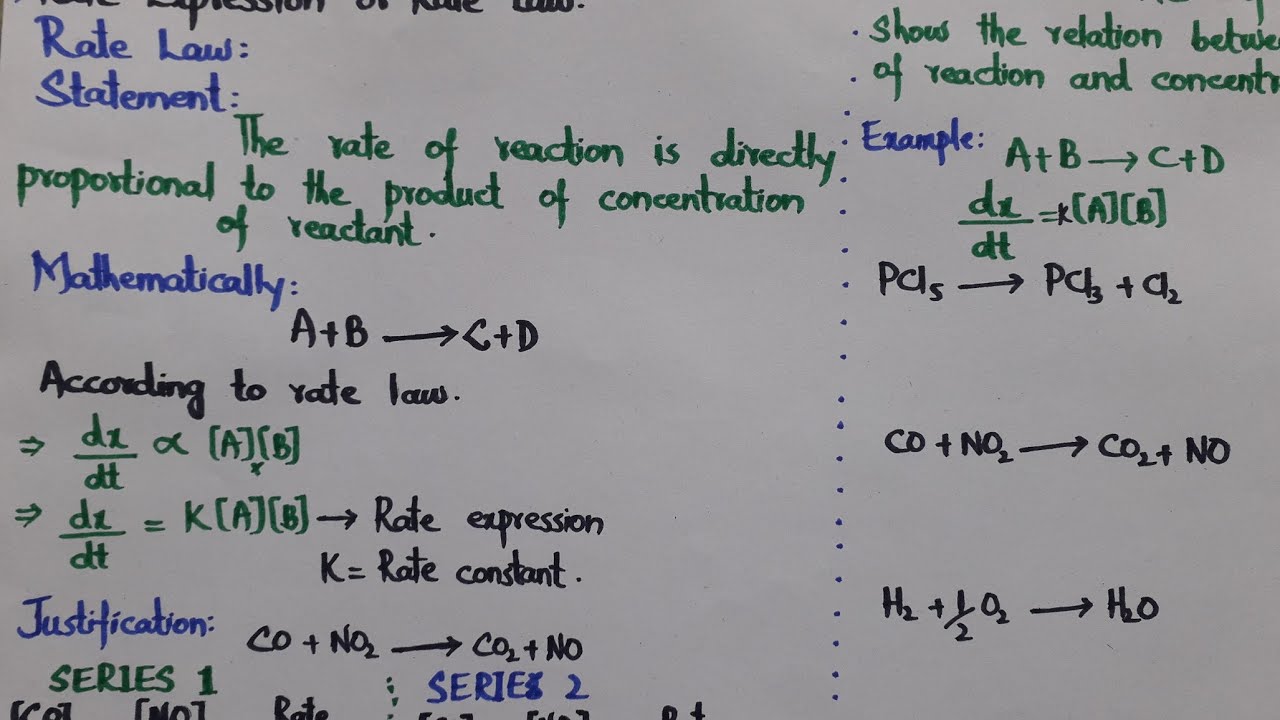 Expression of Rate Law.
Rate Law:
Statement:
The rate of reaction is directly
proportional to the product of concentration
of reactant.
Mathematically:
A+B ⟶ C+D
According to rate law.
⇒ dx/dt ∝ [A][B]
⇒ dx/dt = K[A][B] → Rate expression
K = Rate constant.
Justification:
CO + NO₂ ⟶ CO₂ + NO
SERIES 1 SERIES 2
[CO] [NO] Rate
show the relation
of reaction and
Example:
A+B ⟶ C+D
dx/dt = k[A][B]
PCl₅ ⟶ PCl₃ + Cl₂
CO + NO₂ ⟶ CO₂ + NO
H₂ + 1/2 O₂ ⟶ H₂O